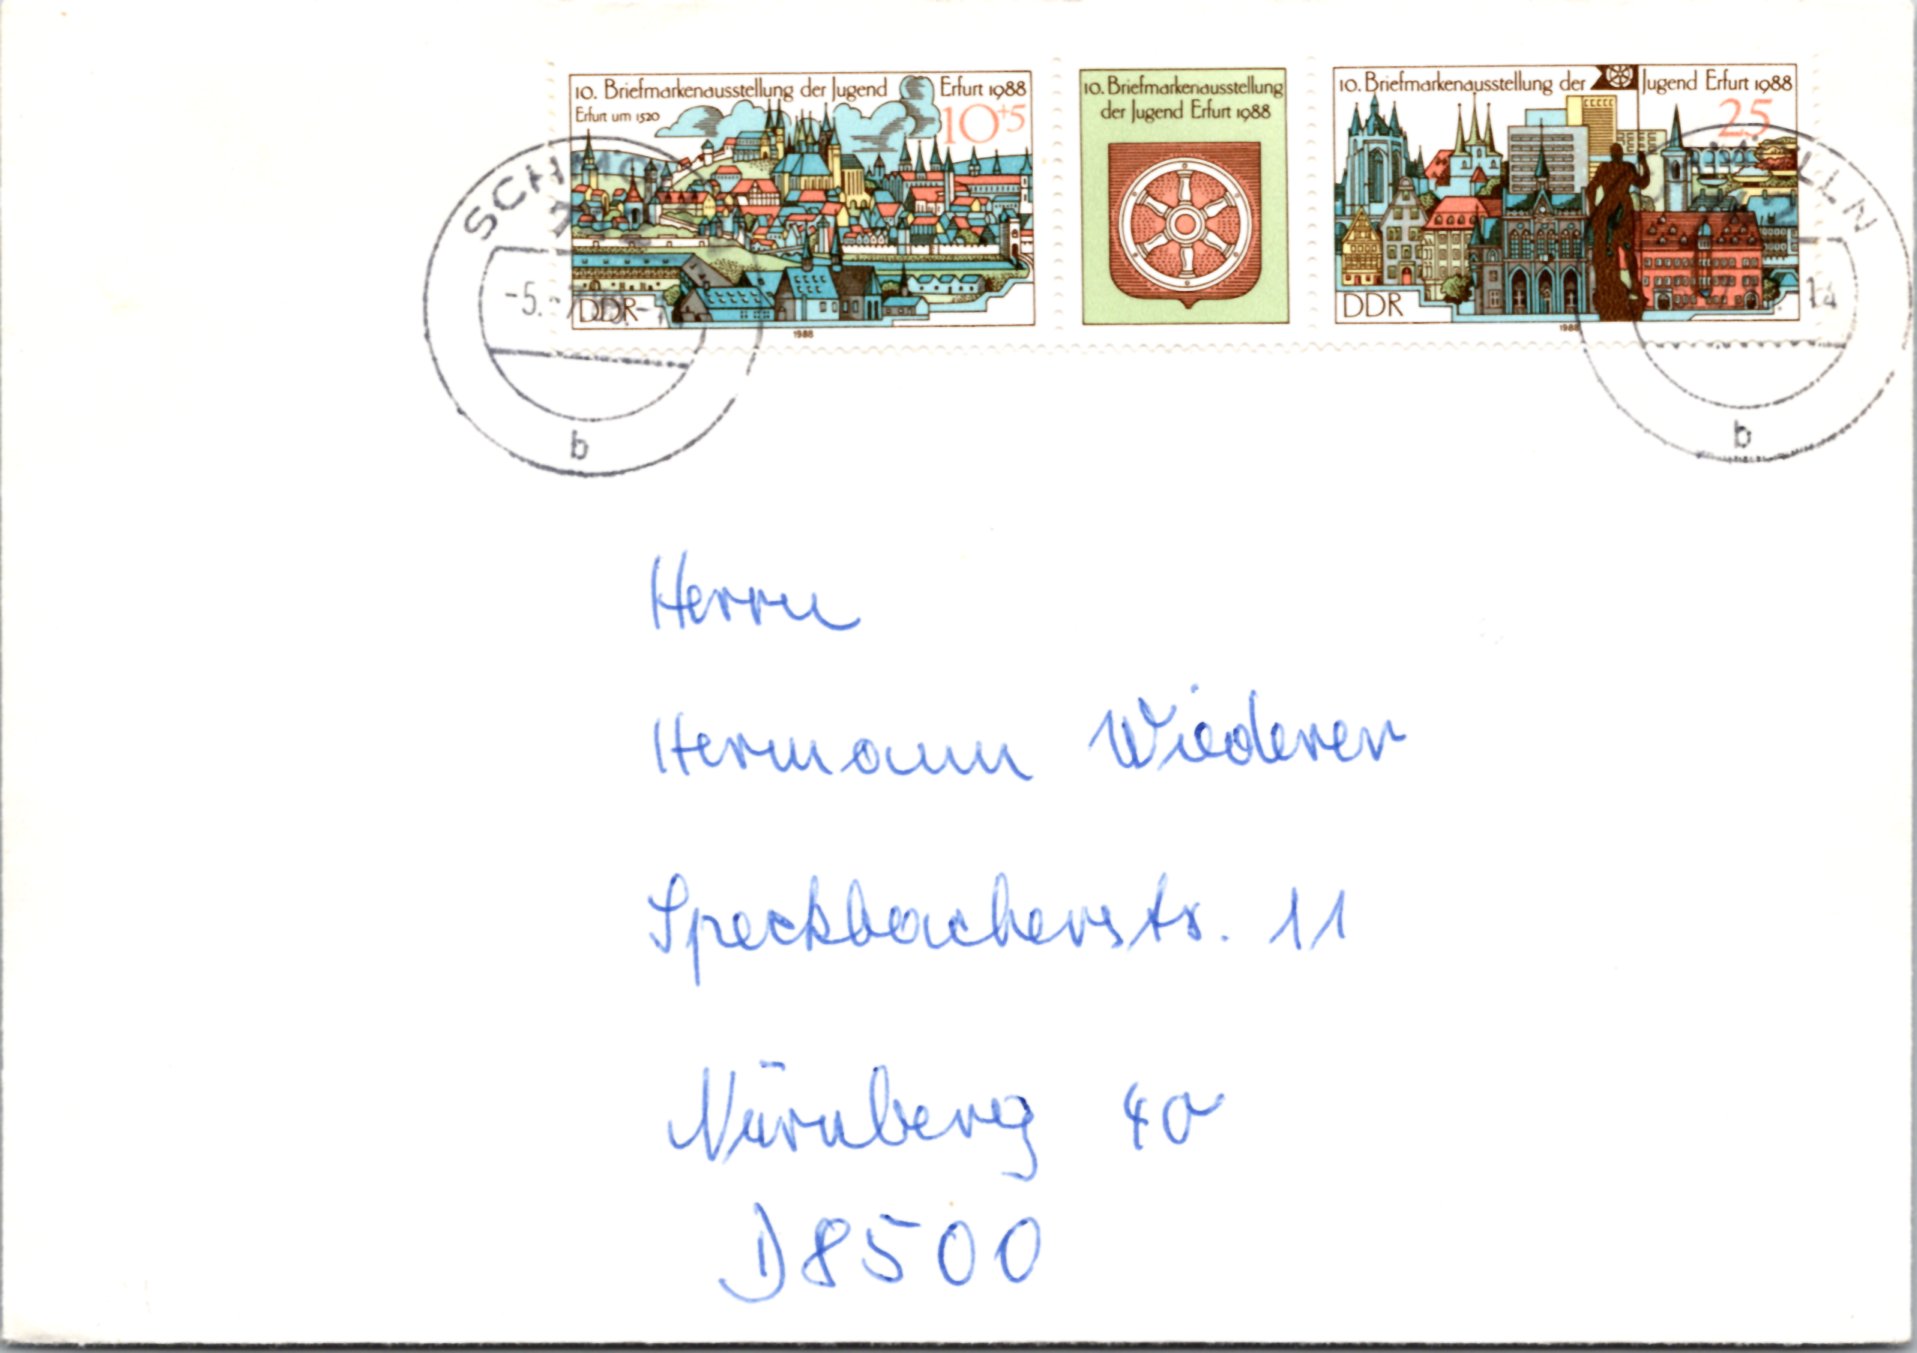 10. Briefmarkenausstellung der Jugend Erfurt 1988
Erfurt um 1520
10+5
DDR
1988
10. Briefmarkenausstellung
der Jugend Erfurt 1988
10. Briefmarkenausstellung der Jugend Erfurt 1988
25
DDR
1988
SCHMÖ
-5.-7
b
LLN
b
Herrn
Hermann Wiederer
Speckbacherstr. 11
Nürnberg 40
D8500